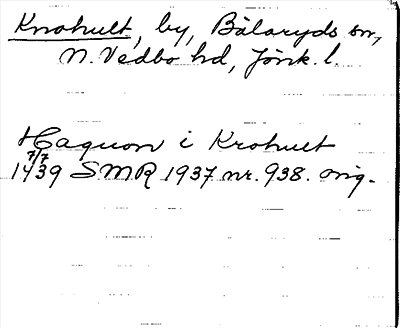 Krohult, by, Bälaryds sn,
N. Vedbo hd, Jönk. l.
Haquon i Krohult
7/7
1439 SMR 1937 nr. 938. orig.